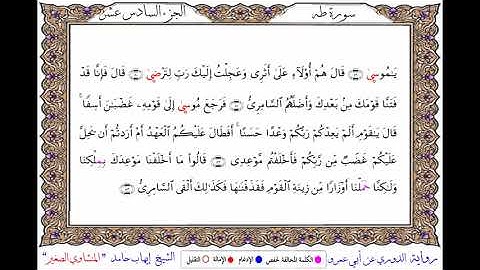 سورة طه
الجزء السادس عشر
يَٰمُوسَىٰ ۝ قَالَ هُمْ أُوْلَآءِ عَلَىٰٓ أَثَرِى وَعَجِلْتُ إِلَيْكَ رَبِّ لِتَرْضَىٰ ۝ قَالَ فَإِنَّا قَدْ
فَتَنَّا قَوْمَكَ مِنۢ بَعْدِكَ وَأَضَلَّهُمُ ٱلسَّامِرِىُّ ۝ فَرَجَعَ مُوسَىٰٓ إِلَىٰ قَوْمِهِۦ غَضْبَٰنَ أَسِفًا ۚ
قَالَ يَٰقَوْمِ أَلَمْ يَعِدْكُمْ رَبُّكُمْ وَعْدًا حَسَنًا ۚ أَفَطَالَ عَلَيْكُمُ ٱلْعَهْدُ أَمْ أَرَدتُّمْ أَن يَحِلَّ
عَلَيْكُمْ غَضَبٌ مِّن رَّبِّكُمْ فَأَخْلَفْتُم مَّوْعِدِى ۝ قَالُوا۟ مَآ أَخْلَفْنَا مَوْعِدَكَ بِمِلْكِنَا
وَلَٰكِنَّا حَمَلْنَآ أَوْزَارًا مِّن زِينَةِ ٱلْقَوْمِ فَقَذَفْنَٰهَا فَكَذَٰلِكَ أَلْقَى ٱلسَّامِرِىُّ ۝
رواية الدوري عن أبي عمرو
الكلمة المخالفة لحفص الإدغام الإمالة التقليل
الشيخ إيهاب حامد "المنشاوي الصغير"